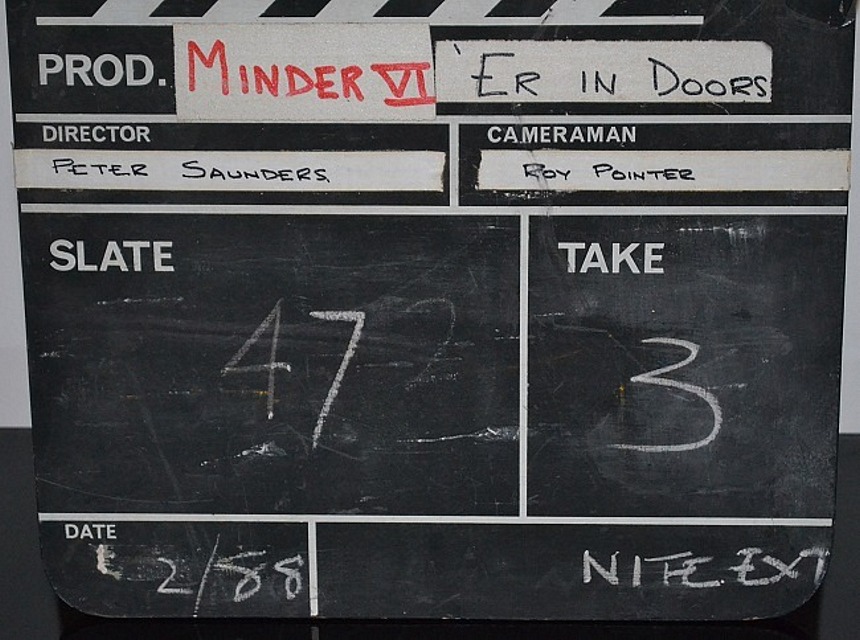 PROD. MINDER VI 'ER IN DOORS
DIRECTOR
PETER SAUNDERS
CAMERAMAN
ROY POINTER
SLATE
47
TAKE
3
DATE
2/88
NITE EXT